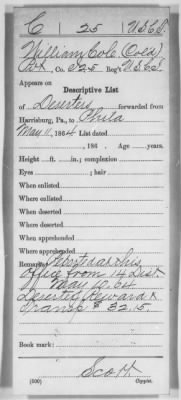 C 25 U.S.C.T.
William Cole (Cold)
Pvt, Co. 25 Reg't U.S.C.T.
Appears on
Descriptive List
of Deserters forwarded from
Harrisburg, Pa., to Phila
May 11, 1864 List dated
, 186 . Age years.
Height ft. in.; complexion
Eyes ; hair
When enlisted
Where enlisted
When deserted
Where deserted
When apprehended
Where apprehended
Remarks: this
office from 14 Dist
May 10, 64
Deserted Reward &
Transp $ 32.15
Book mark:
Scott
(509) Copyist.